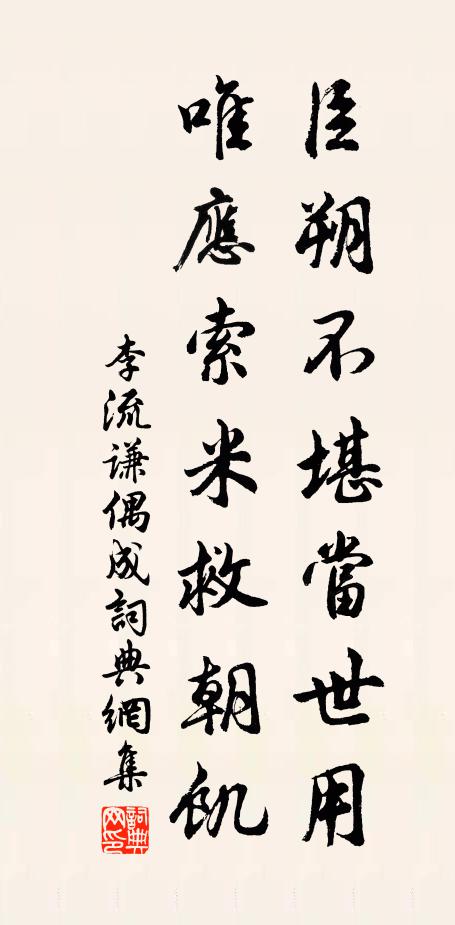 臣朔不堪當世用
唯應索米救朝飢
李流謙偶成詞典網集
詞典網印